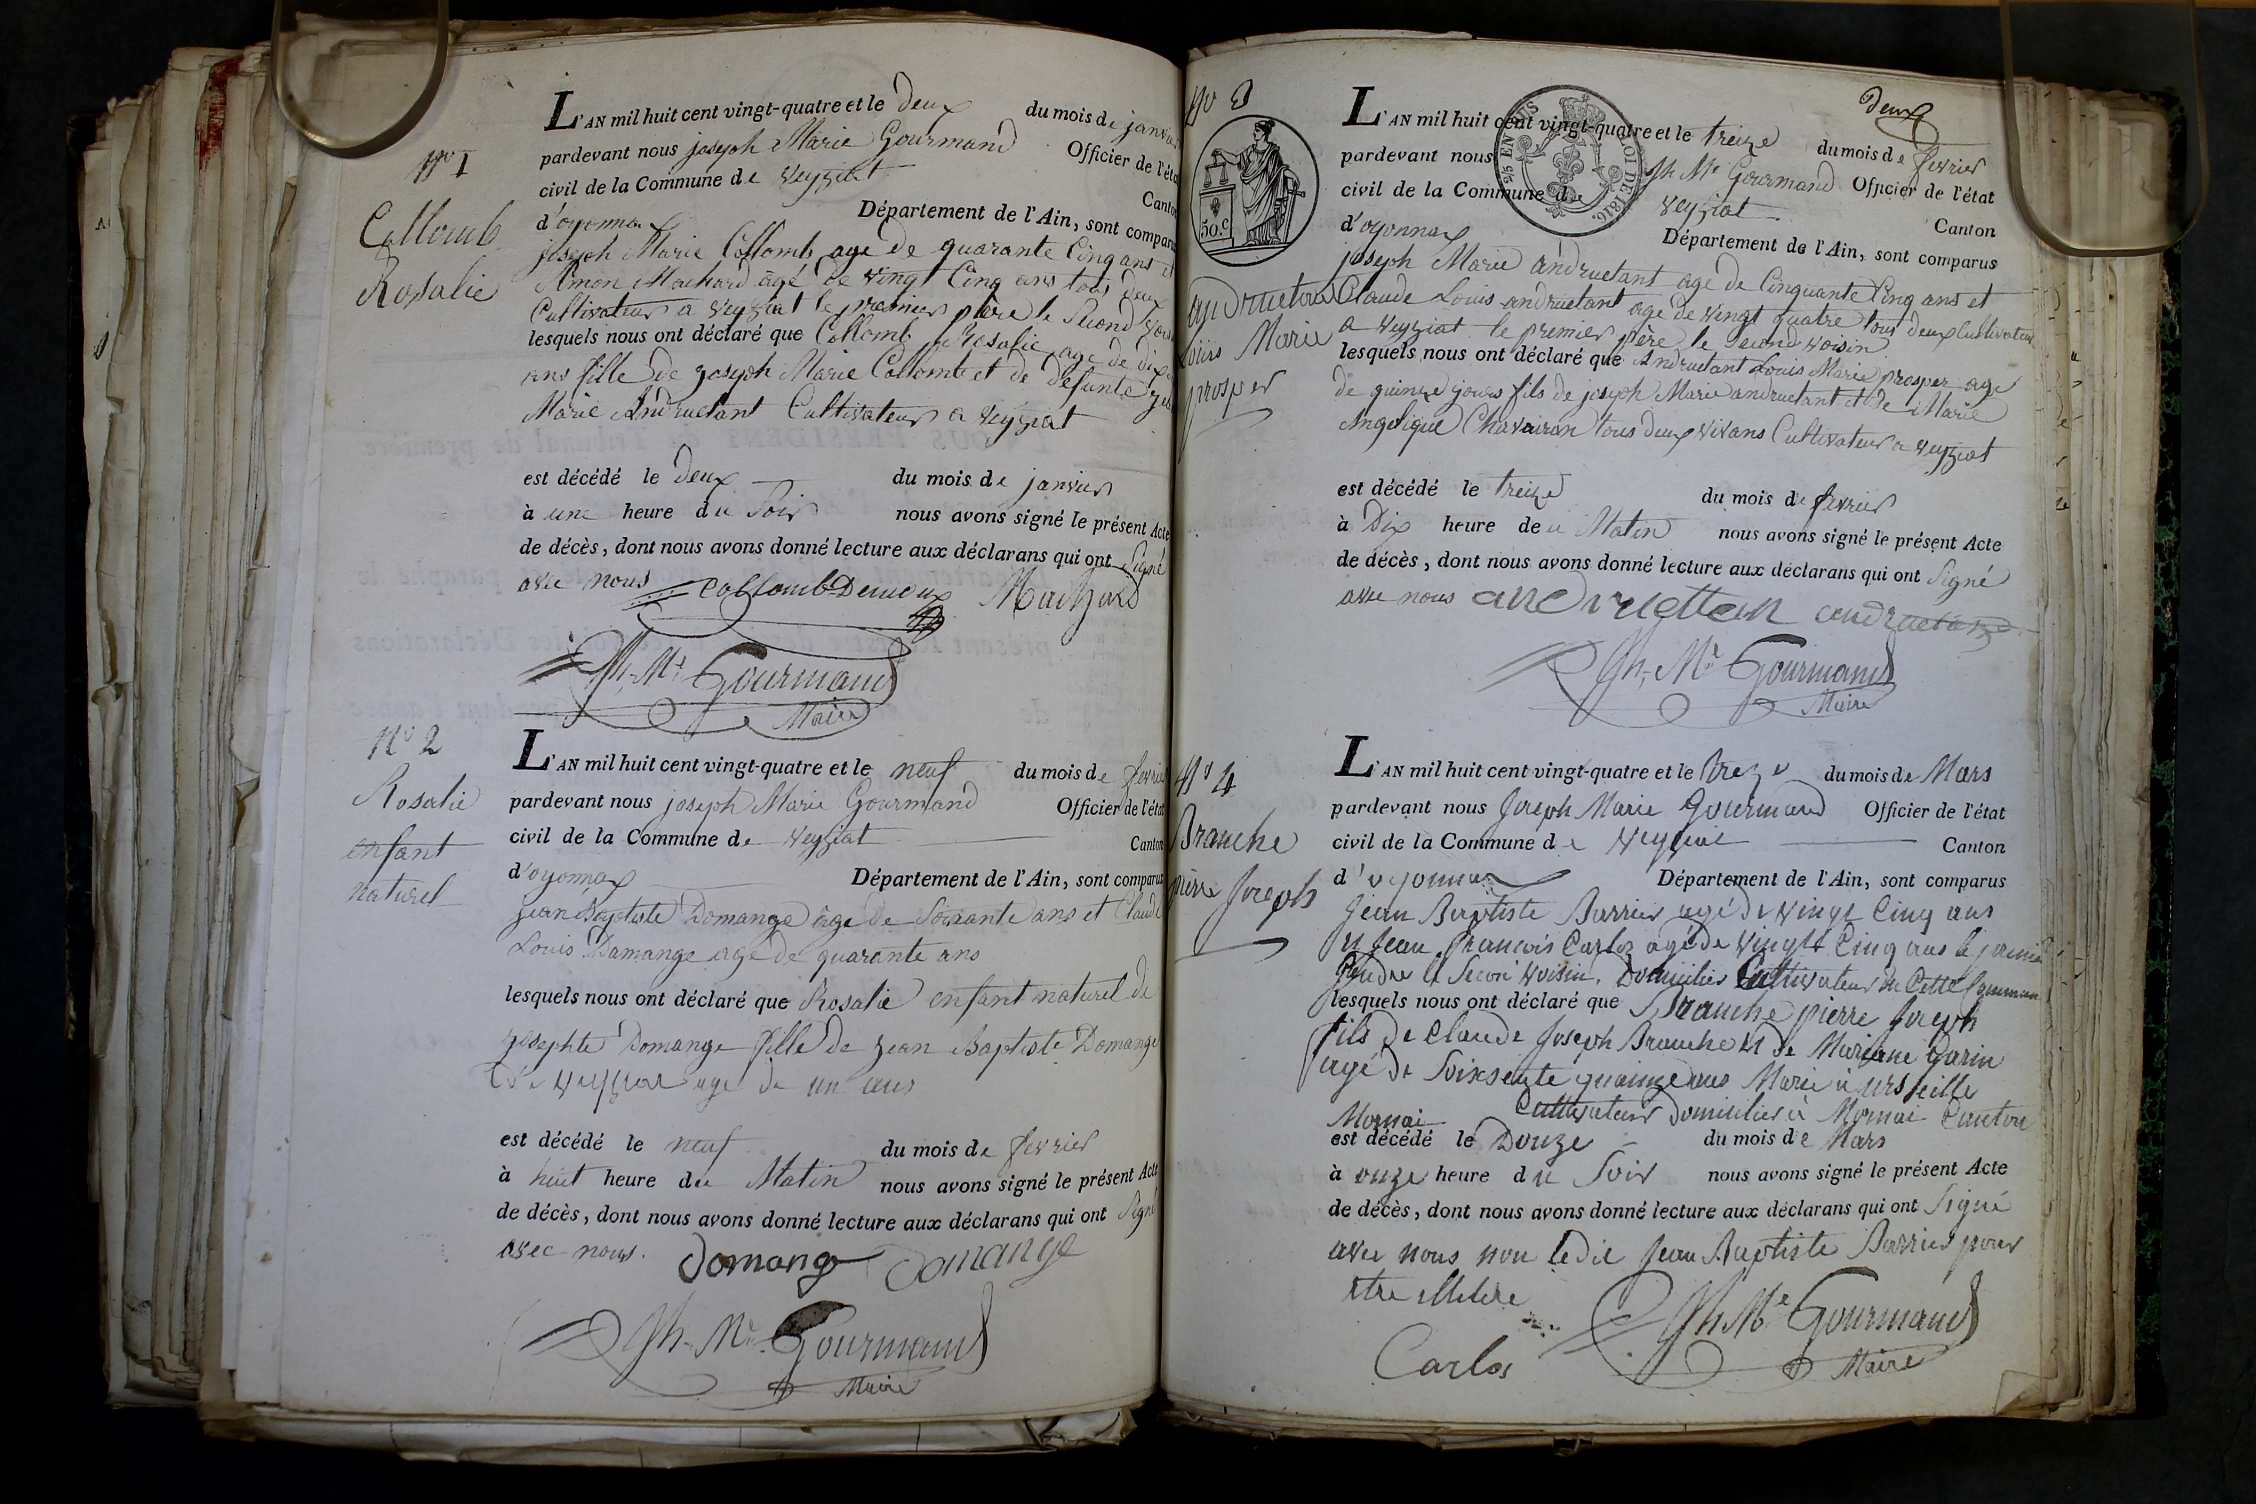 N° 1
Collomb
Rosalie
L'AN mil huit cent vingt-quatre et le deux du mois de janvier
pardevant nous joseph Marie Gourmand Officier de l'état
civil de la Commune de veyziat Canton
d'oyonnax Département de l'Ain, sont comparus
joseph Marie Collomb age de quarante Cinq ans et
Simon Machard âgé de vingt Cinq ans tous deux
Cultivateur a veyziat le premier père le second voisin
lesquels nous ont déclaré que Collomb Rosalie age de dix
ans fille de joseph Marie Collomb et de defunte
Marie Andruetant Cultivateur a veyziat
est décédé le deux du mois de janvier
à une heure du Soir nous avons signé le présent Acte
de décès, dont nous avons donné lecture aux déclarans qui ont Signé
avec nous Collomb Machard
Jh. Me Gourmand
Maire
N° 2
Rosalie
enfant
naturel
L'AN mil huit cent vingt-quatre et le neuf du mois de fevrier
pardevant nous joseph Marie Gourmand Officier de l'état
civil de la Commune de veyziat Canton
d'oyonnax Département de l'Ain, sont comparus
jean Baptiste Domange âge de Soixante ans et Claude
Louis Damange age de quarante ans
lesquels nous ont déclaré que Rosalie enfant naturel de
josephte Domange fille de jean Baptiste Domange
de veyziat age de un ans
est décédé le neuf du mois de fevrier
à huit heure du Matin nous avons signé le présent Acte
de décès, dont nous avons donné lecture aux déclarans qui ont Signé
avec nous. Domange Domange
Jh. Me Gourmand
Maire
deux
N° 3
50.c
EN SUS
LOI DE 1816.
andruetant
Louis Marie
prosper
L'AN mil huit cent vingt-quatre et le treize du mois de fevrier
pardevant nous Jh Me Gourmand Officier de l'état
civil de la Commune de veyziat Canton
d'oyonnax Département de l'Ain, sont comparus
joseph Marie andruetant age de Cinquante Cinq ans et
Claude Louis andruetant age de vingt quatre tous deux Cultivateur
a veyziat le premier père le second voisin
lesquels nous ont déclaré que Andruetant Louis Marie prosper age
de quinze jours fils de joseph Marie andruetant et de Marie
Angelique Chavairon tous deux vivans Cultivateur a veyziat
est décédé le treize du mois de fevrier
à Dix heure du Matin nous avons signé le présent Acte
de décès, dont nous avons donné lecture aux déclarans qui ont Signé
avec nous andruettan andruetant
Jh. Me Gourmand
Maire
N° 4
Branche
pierre Joseph
L'AN mil huit cent vingt-quatre et le treize du mois de Mars
pardevant nous Joseph Marie Gourmand Officier de l'état
civil de la Commune de Veyziat Canton
d'oyonnax Département de l'Ain, sont comparus
Jean Baptiste Barrier agé de vingt Cinq ans
et Jean François Carlos agé de vingt Cinq ans le premier
Gendre le Second voisin. Domicilies Cultivateur de Cette Commune
lesquels nous ont déclaré que Branche pierre Joseph
fils de Claude Joseph Branche et de Mariane
agé de Soixsente quainze ans Marie à
Mornai Cultivateur domicilier à Mornai Canton
est décédé le Douze du mois de Mars
à onze heure du Soir nous avons signé le présent Acte
de décès, dont nous avons donné lecture aux déclarans qui ont Signé
avec nous non ledit Jean Baptiste Barrier pour
etre
Carlos Jh. Me Gourmand
Maire